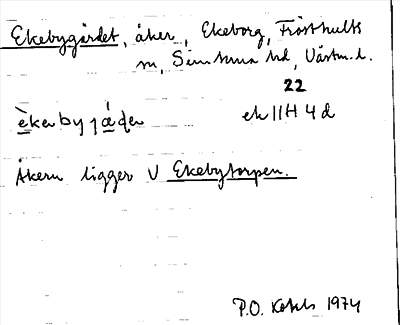 Ekebygärdet, åker, Ekeborg, Frösthults
sn, Simtuna hd, Västm. l.
22
èkebyjæ̀ḍe
ek 11H 4d
Åkern ligger V Ekebytorpen.
P.O. 1974